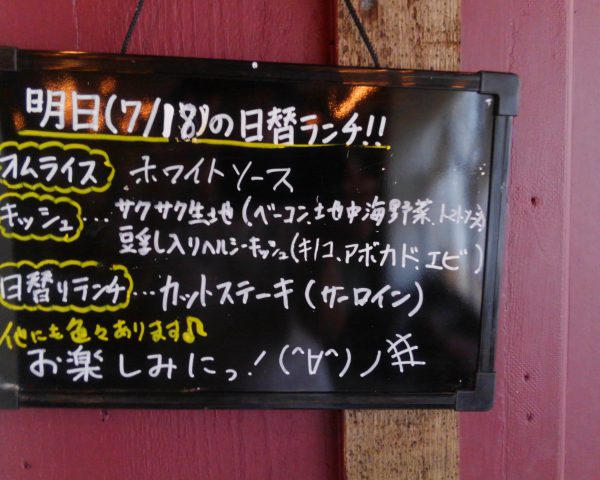 明日(7/18)の日替ランチ!!
オムライス ホワイトソース
キッシュ…サクサク生地(ベーコン、地中海野菜、
豆乳入りヘルシーキッシュ(キノコ、アボカド、エビ)
日替りランチ…カットステーキ(サーロイン)
他にも色々あります♪
お楽しみにっ!(^∀^)ノ